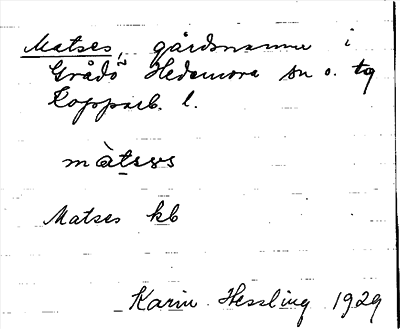 Matses, gårdsnamn i
Grådö Hedemora sn o. tg
Kopparb. l.
màtsɐs
Matses kb
Karin Hessling 1929